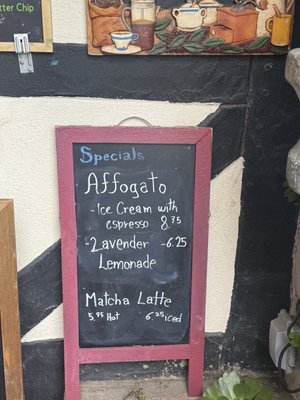 tter Chip
Specials
Affogato
- Ice Cream with
espresso 8.75
- Lavender - 6.25
Lemonade
Matcha Latte
5.95 Hot 6.25 iced